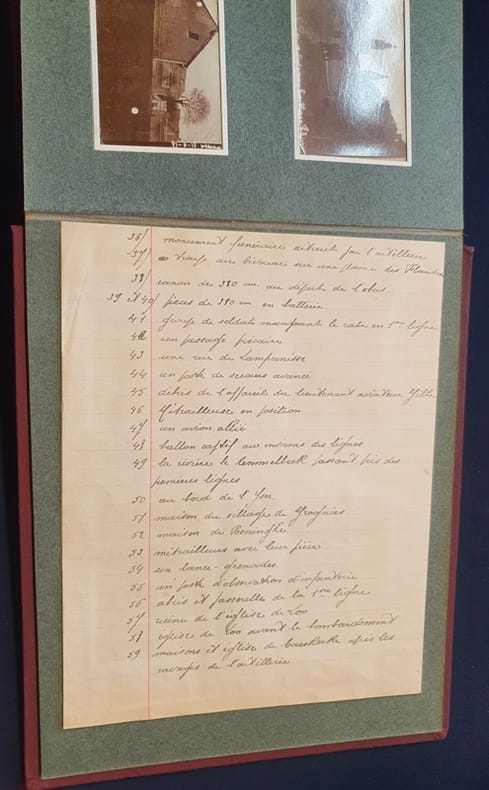 36/ monument funéraire détruit par l'artillerie
37/ troupe au bivouac sur une place des Flandres
38/ canon de 380 mm. au départ de l'obus
39 et 40/ pièces de 380 m en batterie.
41 groupe de soldats mangeant le rata en 1ère ligne
42 un passage précaire
43 une rue de Lampernisse
44 un poste de secours avancé
45 débris de l'appareil du lieutenant aviateur
46 Mitrailleuse en position
47 un avion allié
48 ballon captif aux environs des lignes
49 la rivière le Kemmelbeek passant près des
premières lignes
50 au bord de l'Yser
51 maison du village de
52 maison de Reninghe
53 mitrailleurs avec leur pièce
54 un lance-grenades
55 un poste d'observation d'infanterie
56 abris et passerelle de la 1ère ligne
57 ruines de l'église de Loo
58 église de Loo avant le bombardement
59 maisons et église de Caeskerke après les
ravages de l'artillerie